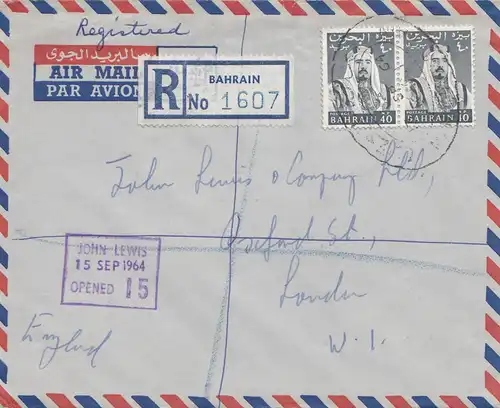 Registered
بالبريد الجوى
AIR MAIL
PAR AVION
R
BAHRAIN
No 1607
٤٠
POSTAGE
BAHRAIN 40
٤٠
POSTAGE
BAHRAIN
John Lewis & Company Ltd.,
Oxford St.,
London
W. 1.
England
JOHN LEWIS
15 SEP 1964
OPENED 15